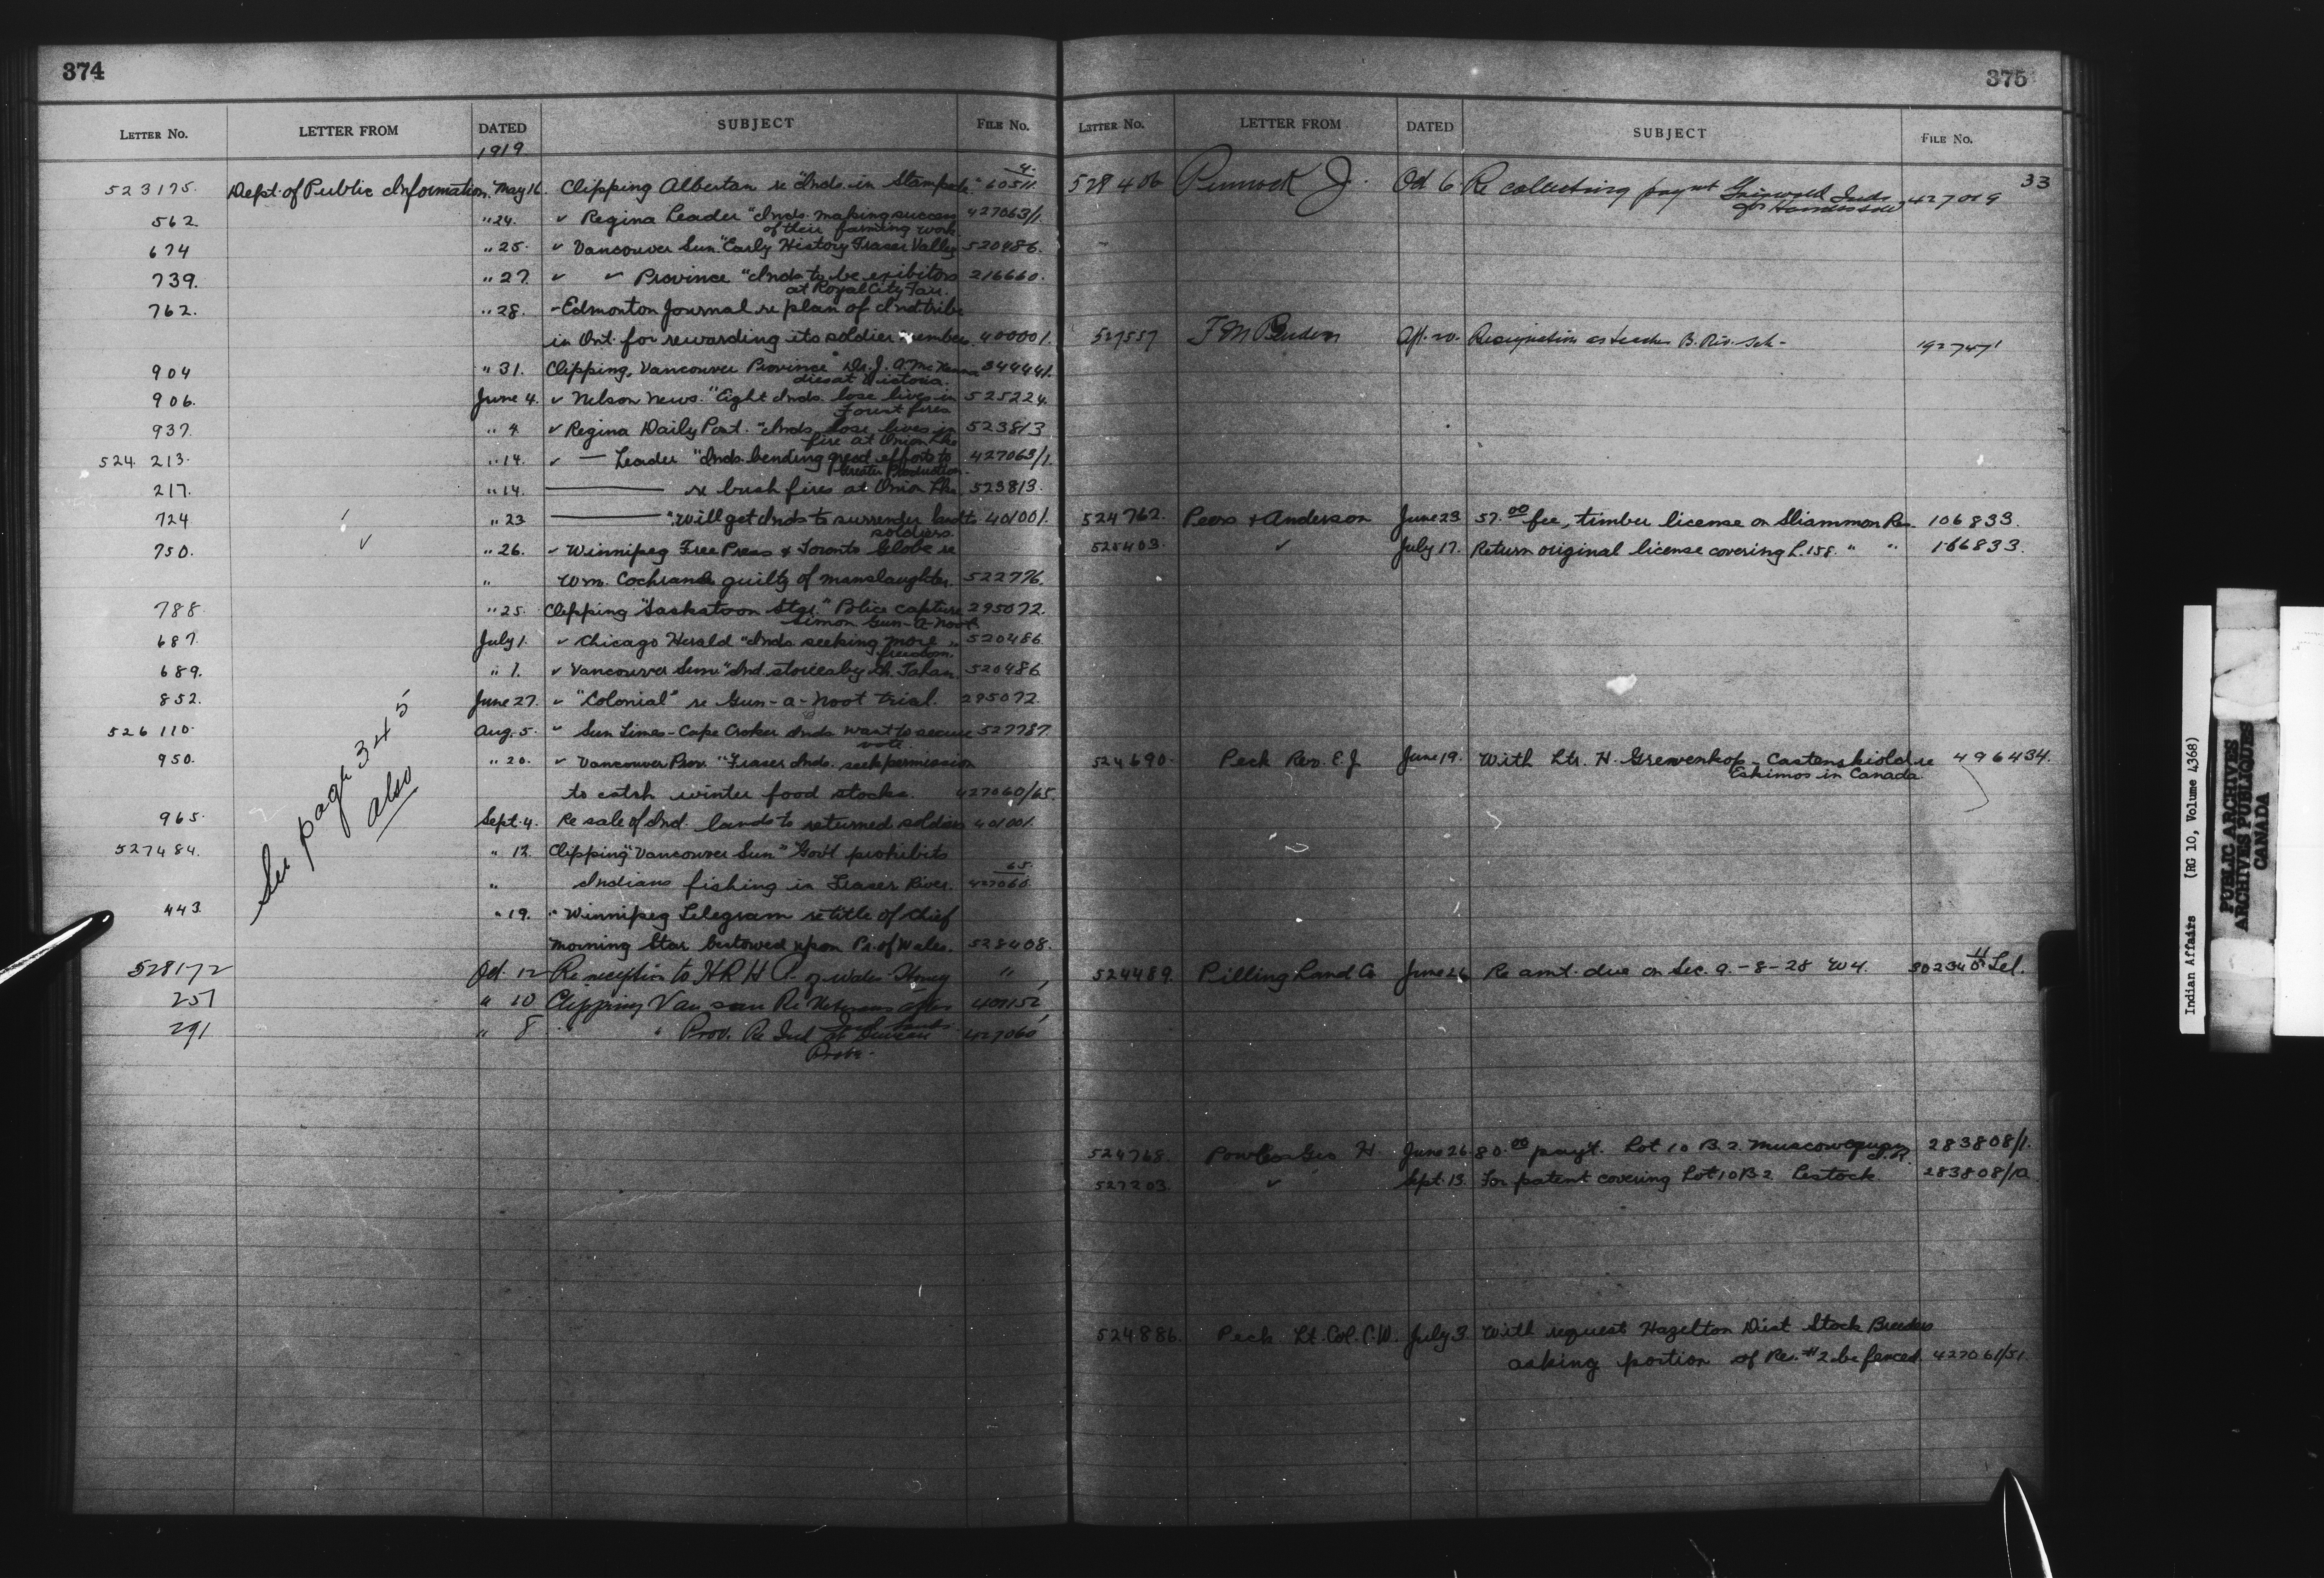 374
LETTER No. LETTER FROM DATED SUBJECT FILE No.
1919.
523175. Dept. of Public Information May 16. Clipping Albertan re "Inds. in Stampede" 4. 60511.
562. " 24. " Regina Leader "Inds. making success 427063/1.
of their farming work
674 " 25. " Vancouver Sun "Early History Fraser Valley 520486.
739. " 27. " " Province "Inds to be exibitors 216660.
at Royal City Fair.
762. " 28. - Edmonton Journal re plan of Ind. tribe
in Ont. for rewarding its soldier members. 400001.
904 " 31. Clipping, Vancouver Province "Dr. J. A. McKenna 344441.
dies at Victoria.
906. June 4. " Nelson News. "Eight Inds. lose lives in 525224.
Forest fires
937. " 4 " Regina Daily Post. "Inds. lose lives in 523813
fire at Onion Lke
524 213. " 14. " — Leader "Inds. bending great efforts to 427063/1.
Greater Production.
217. " 14. re bush fires at Onion Lke 523813.
724 " 23 "Will get Inds to surrender lands to 401001.
soldiers.
750. " 26. " Winnipeg Free Press & Toronto Globe re
" Wm. Cochrane guilty of manslaughter. 522776.
788. " 25. Clipping "Saskatoon Star" Police capture 295072.
Simon Gun-a-noot.
687. July 1. " Chicago Herald "Inds. seeking more 520486
freedom.
689. " 1. " Vancouver Sun "Ind. stories by Ch. 520486
852. June 27. " "Colonial" re Gun-a-Noot trial. 295072.
526 110. Aug. 5. " Sun Times - Cape Croker Inds want to secure 527787
vote.
950. " 20. " Vancouver Prov. "Fraser Inds. seek permission
to catch winter food stocks. 427060/65.
965. Sept. 4. Re sale of Ind. lands to returned soldiers 401001.
527484. " 12. Clipping "Vancouver Sun" Govt prohibits
" Indians fishing in Fraser River. 65. 427060.
443 " 19. " Winnipeg Telegram re title of Chief
Morning Star bestowed upon Pr. of Wales. 528408.
528172 Oct. 12 Re reception to HRH P. of Wales "
257 " 10 Clipping Van sun Re Veterans after
Ind lands
291 " 8 " " Prov. Re Ind at Duncan 427060
See page 345
also
375
LETTER No. LETTER FROM DATED SUBJECT FILE No.
33
528406 Pinnock J. Oct 6 Re collecting paymt Griswold Inds 427019
527557 Resignation as teacher B. Riv. Sch- 192747/1
524762. Peers & Anderson June 23 57.00 fee, timber license on Sliammon Res. 106833.
525403. " July 17. Return original license covering L. 158. " " 166833.
524690. Peck Rev. E. J June 19. With Ltr. H. Grevenkop - Castenskiold re 496434.
Eskimos in Canada
524489. Pilling Land Co June 26 Re amt. due on Sec. 9. - 8 - 28 W4.
524768. Powless Geo H. June 26 80.00 payt. Lot 10 B. 2. Muscowequan I.R. 283808/1.
527203. " Sept. 13. For patent covering Lot 10 B 2 Lestock. 283808/1a.
524886. Peck Lt. Col. C.W. July 3 With request Hazelton Dist Stock Breeders
asking portion of Res. #2 be fenced. 427061/51
Indian Affairs (RG 10, Volume 4368)
PUBLIC ARCHIVES
ARCHIVES PUBLIQUES
CANADA